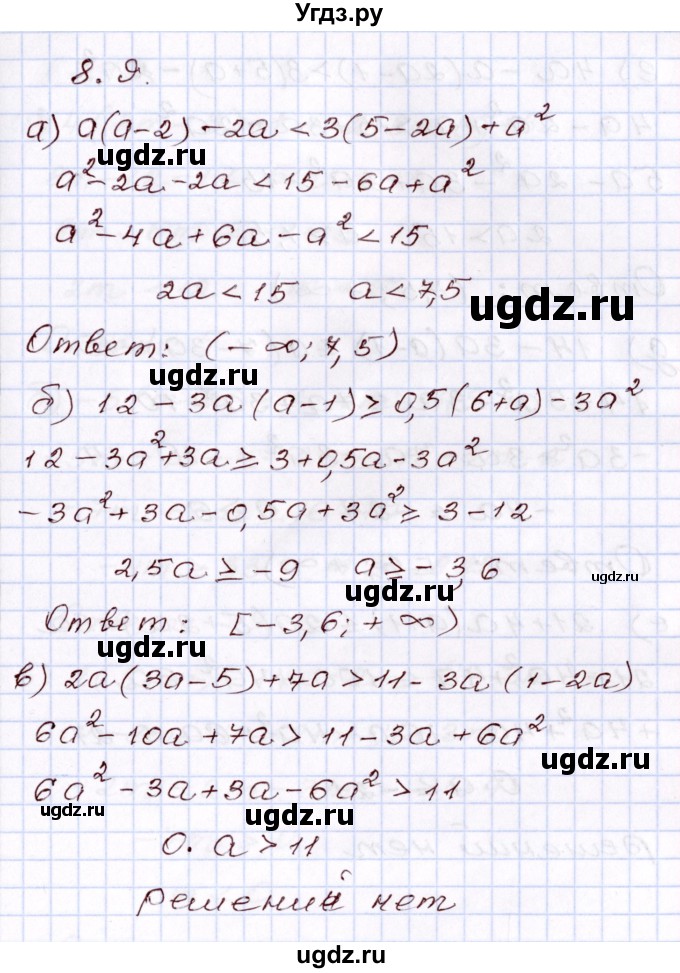 Угдз.ру
8.9.
а) a(a-2) - 2a < 3(5-2a) + a²
ugdz.ru
a² - 2a - 2a < 15 - 6a + a²
a² - 4a + 6a - a² < 15
2a < 15   a < 7,5
ugdz.ru
Ответ: (-∞; 7,5)
ugdz.ru
б) 12 - 3a(a-1) ≥ 0,5(6+a) - 3a²
ugdz.ru
12 - 3a² + 3a ≥ 3 + 0,5a - 3a²
-3a² + 3a - 0,5a + 3a² ≥ 3 - 12
2,5a ≥ -9   a ≥ -3,6
ugdz.ru
ugdz.ru
Ответ: [-3,6; +∞)
ugdz.ru
в) 2a(3a-5) + 7a > 11 - 3a(1-2a)
6a² - 10a + 7a > 11 - 3a + 6a²
ugdz.ru
6a² - 3a + 3a - 6a² > 11
ugdz.ru
0·a > 11
решений нет
ugdz.ru